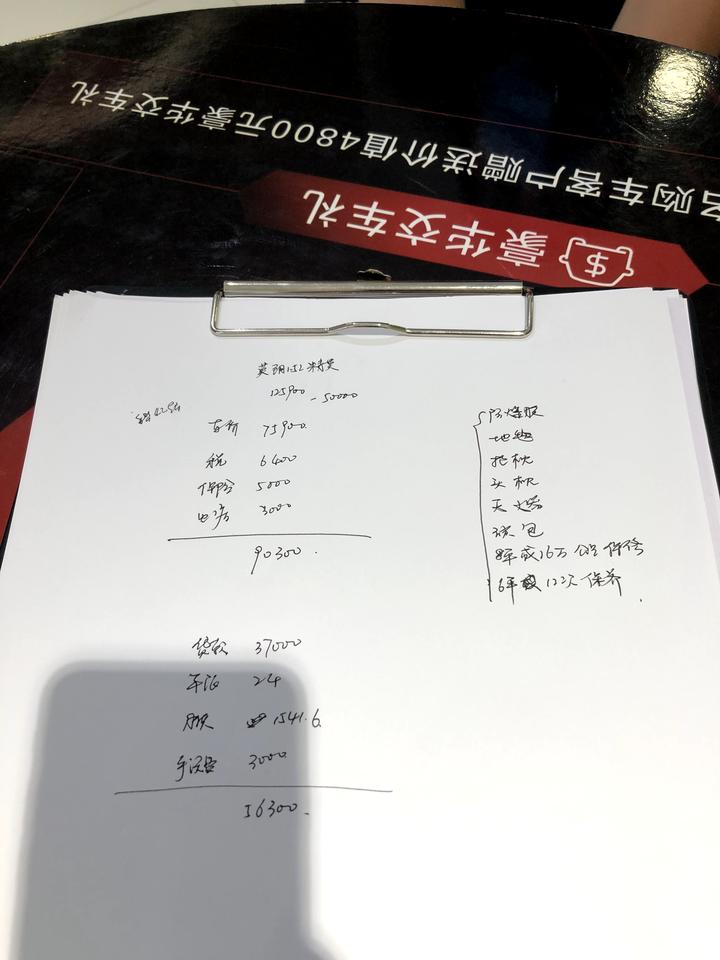 名购车客户赠送价值4800元豪华交车礼
豪华交车礼
英朗1.5L 精英
125900
-50000
车价 75900
税 6400
保险 5000
上户 3000
90300
防爆膜
地毯
抱枕
头枕
灭火器
8年或16万公里保修
6年 12次保养
贷款 37000
24
月供 1541.6
手续费 3000
56300